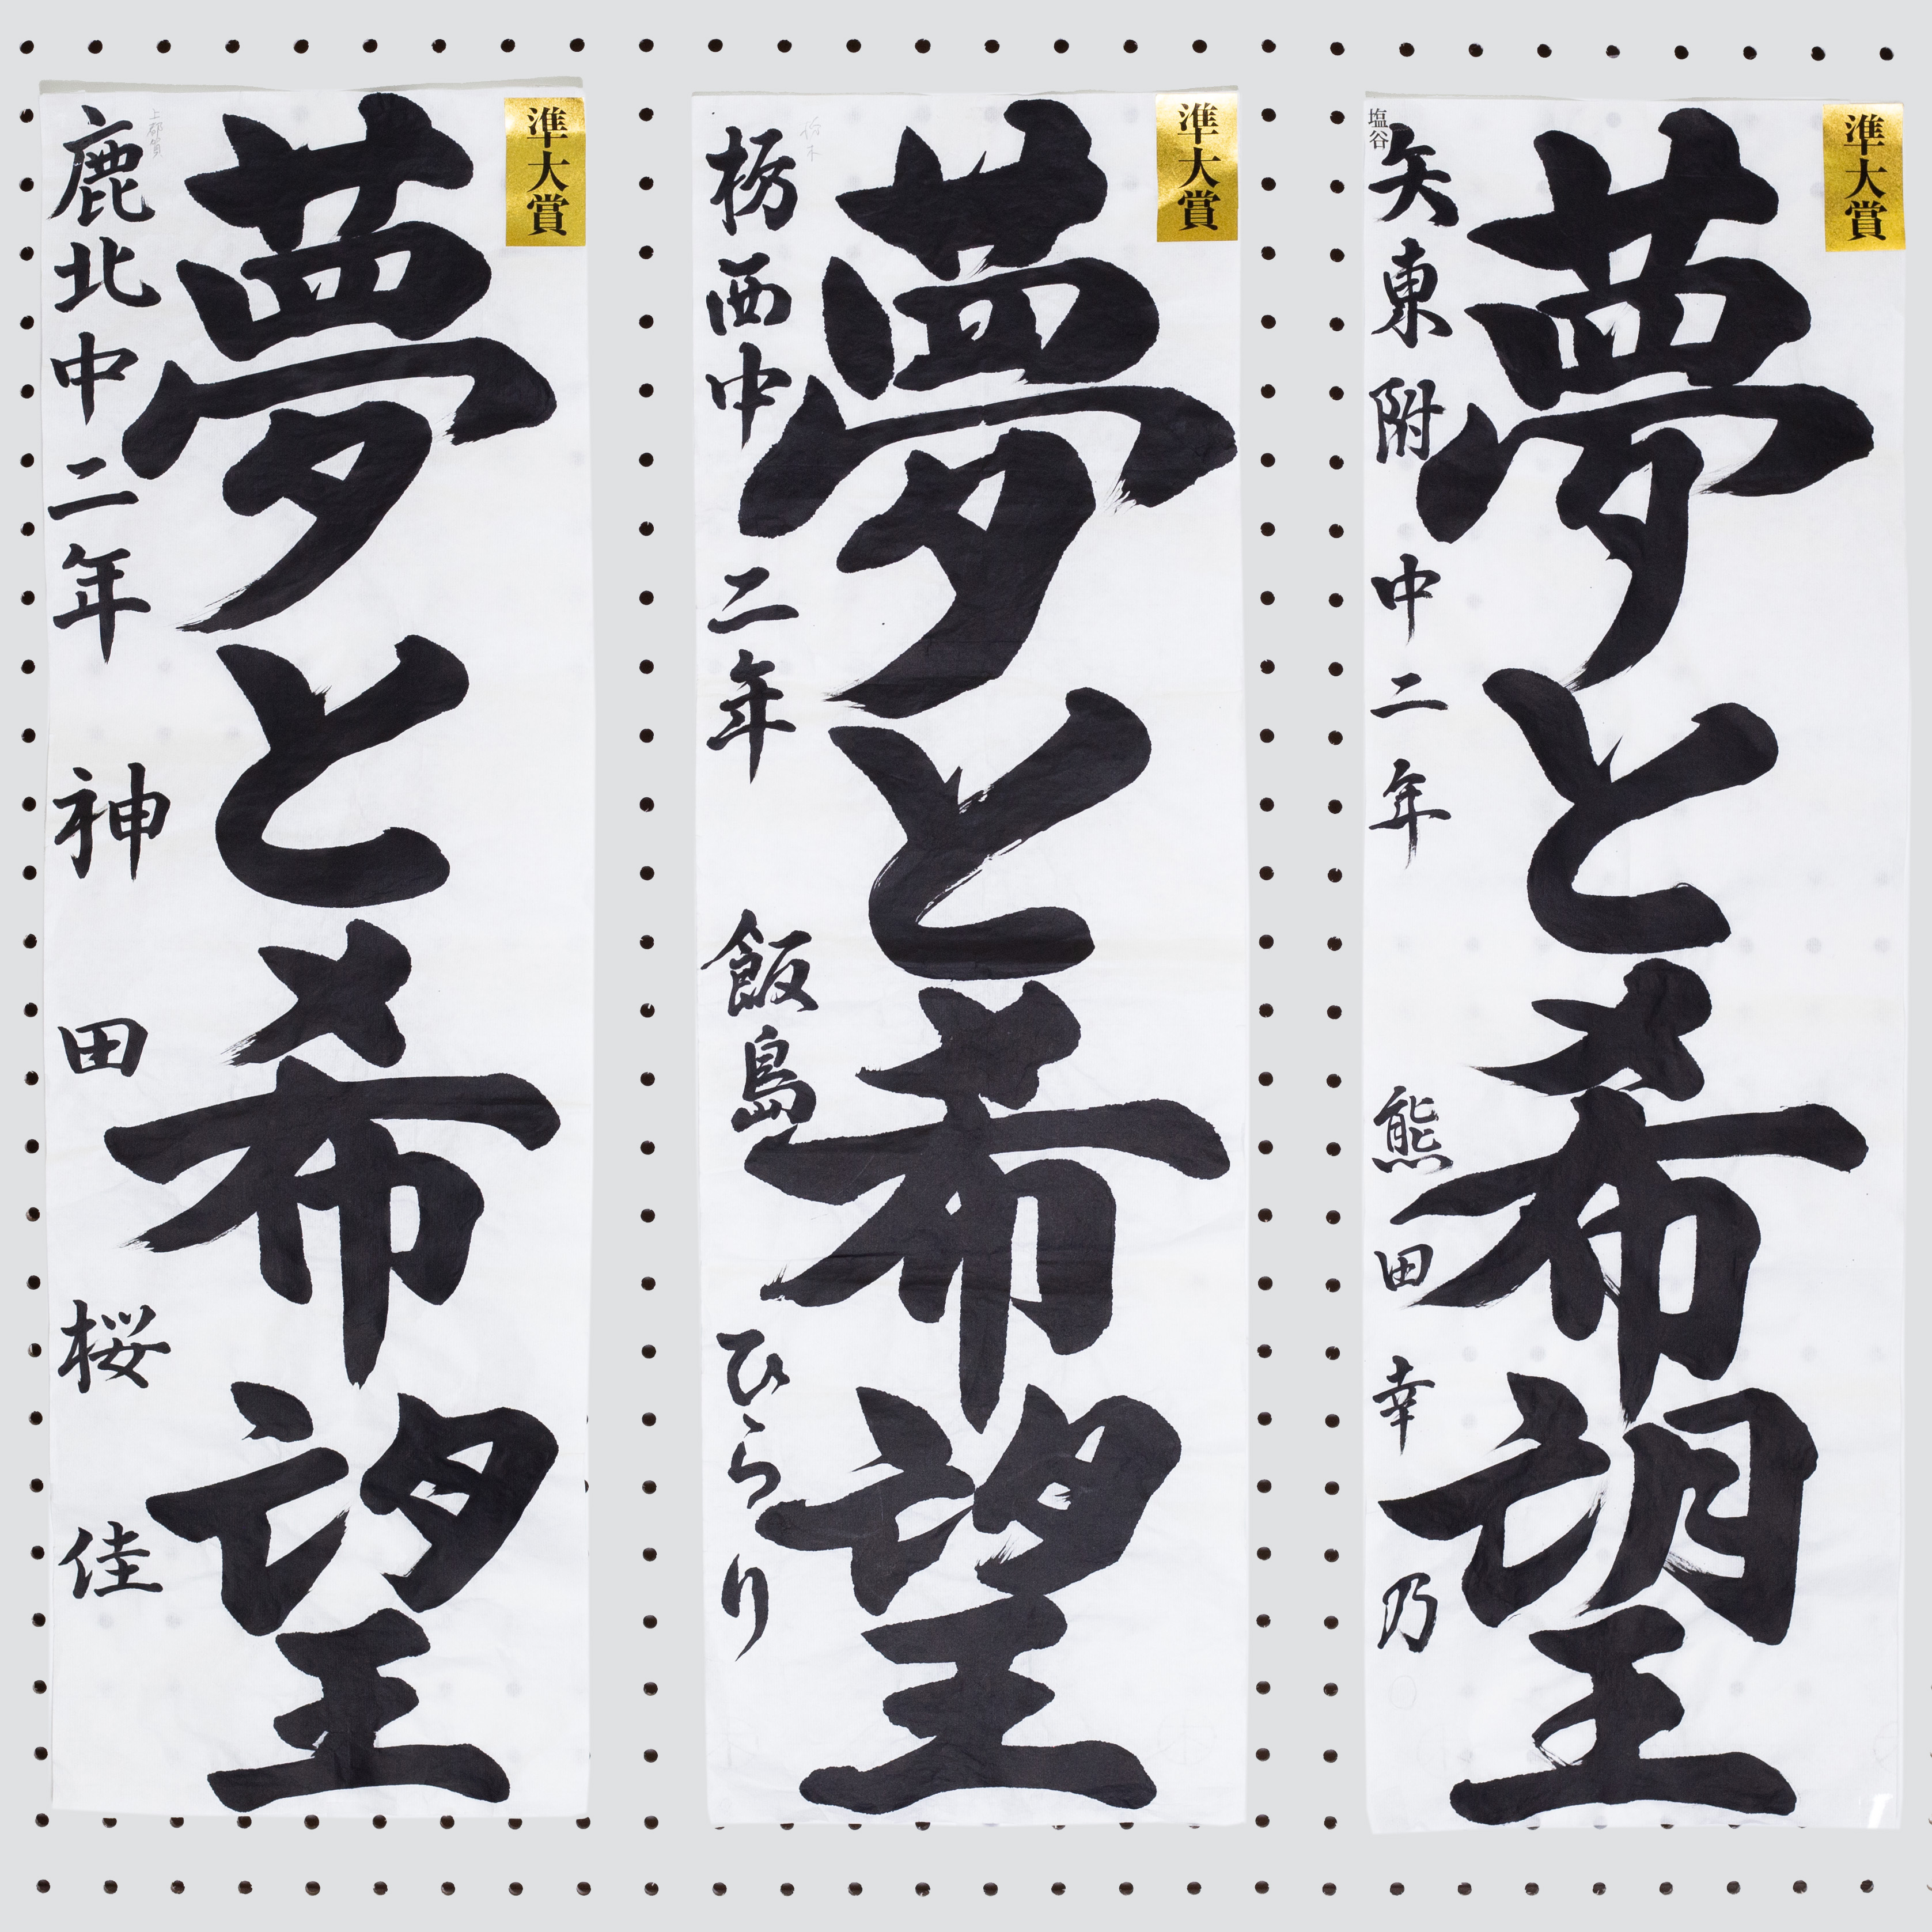 準大賞
夢と希望
塩谷
矢東附中二年 熊田幸乃
準大賞
夢と希望
栃木
栃西中二年 飯島ひらり
準大賞
夢と希望
上都賀
鹿北中二年 神田桜佳